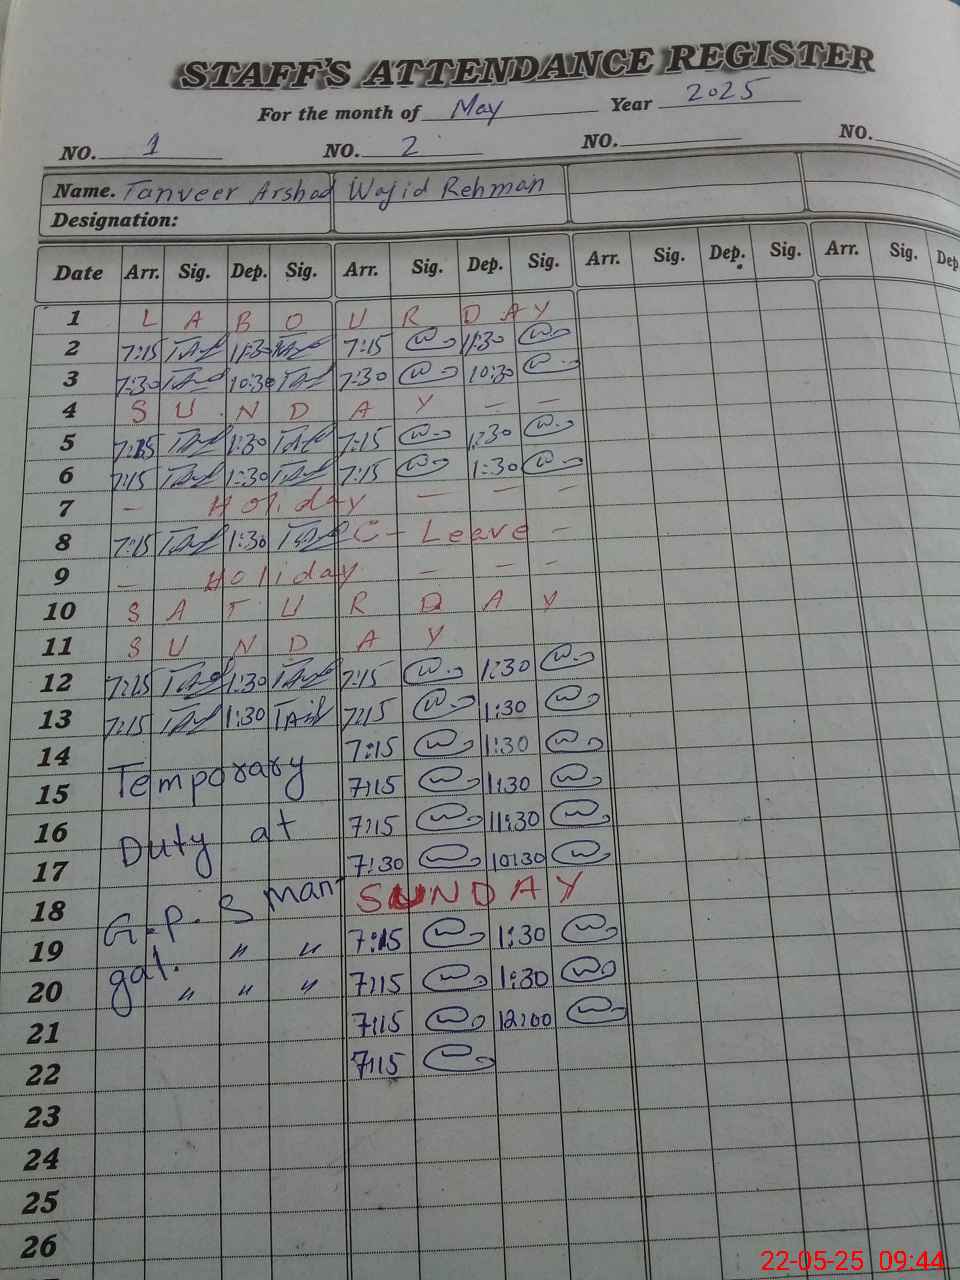 STAFF'S ATTENDANCE REGISTER
For the month of May Year 2025
NO. 1 NO. 2 NO. NO.
Name. Tanveer Arshad Wajid Rehman
Designation:
Date Arr. Sig. Dep. Sig. Arr. Sig. Dep. Sig. Arr. Sig. Dep. Sig. Arr. Sig. Dep
1 L A B O U R D A Y
2 7:15 11:30 7:15 11:30
3 7:30 10:30 7:30 10:30
4 S U N D A Y - -
5 7:15 1:30 7:15 1:30
6 7:15 1:30 7:15 1:30
7 - Holiday - - -
8 7:15 1:30 C - Leave -
9 - Holiday - - -
10 S A T U R D A Y
11 S U N D A Y
12 7:15 1:30 7:15 1:30
13 7:15 1:30 7:15 1:30
14 7:15 1:30
15 Temporary 7:15 1:30
16 7:15 11:30
17 Duty at 7:30 10:30
18 G.P.S Man- SUNDAY
19 " " 7:15 1:30
20 gal. " " " 7:15 1:30
21 7:15 12:00
22 7:15
23
24
25
26
22-05-25 09:44